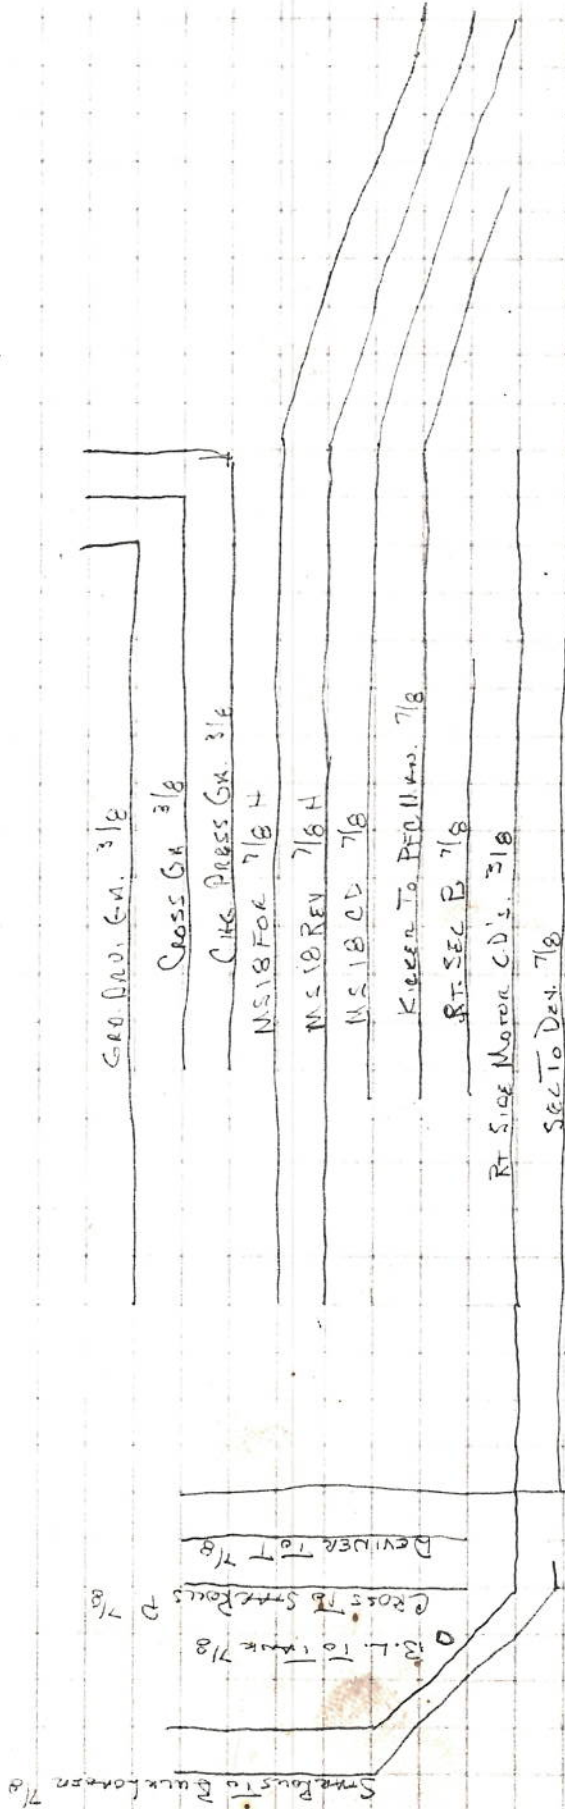 GRD. DRV. GR. 3/8
CROSS GR 3/8
CHG PRESS GR. 3/8
MS18 FOR 7/8 H
MS 18 REV 7/8 H
MS 18 CD 7/8
KICKER TO 7/8
RT. SEC P 7/8
RT SIDE MOTOR C.D's. 3/8
SEC TO DEV. 7/8
DEVIDER TO T 7/8
CROSS TO STARROLLS P 7/8
B.L. TO TANK 7/8
STARROLLS TO 7/8